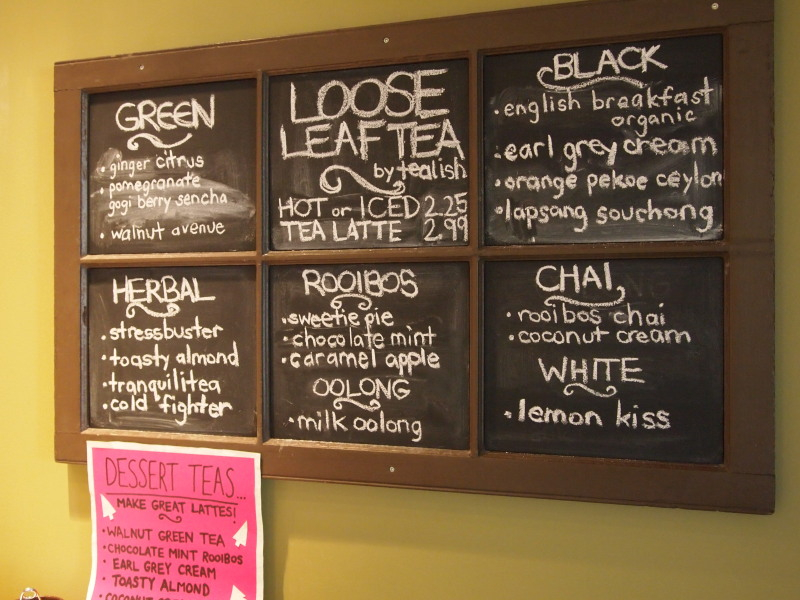 GREEN
• ginger citrus
• pomegranate
gogi berry sencha
• walnut avenue
LOOSE
LEAF TEA
by tealish
HOT or ICED 2.25
TEA LATTE 2.99
BLACK
• english breakfast
organic
• earl grey cream
• orange pekoe ceylon
• lapsang souchong
HERBAL
• stressbuster
• toasty almond
• tranquilitea
• cold fighter
ROOIBOS
• sweetie pie
• chocolate mint
• caramel apple
OOLONG
• milk oolong
CHAI
• rooibos chai
• coconut cream
WHITE
• lemon kiss
DESSERT TEAS...
MAKE GREAT LATTES!
• WALNUT GREEN TEA
• CHOCOLATE MINT ROOIBOS
• EARL GREY CREAM
• TOASTY ALMOND
• COCONUT